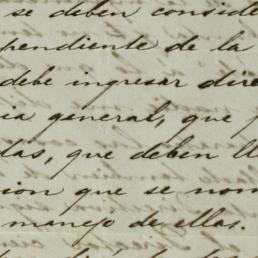 se deben conside
pendiente de la
debe ingresar dire
ia general, que
das, que deben ll
cion que se nom
manejo de ellas.